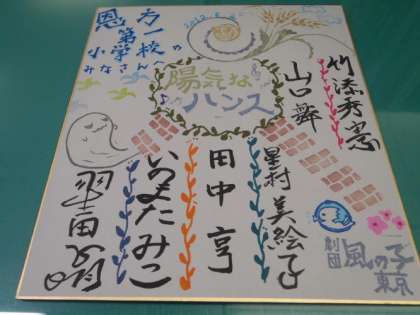 恩方第一
小学校の
みなさんへ
陽気な
ハンス
竹添秀憲
山口舞
星村美絵子
田中亨
いのまたみこ
劇団
風の子
東京